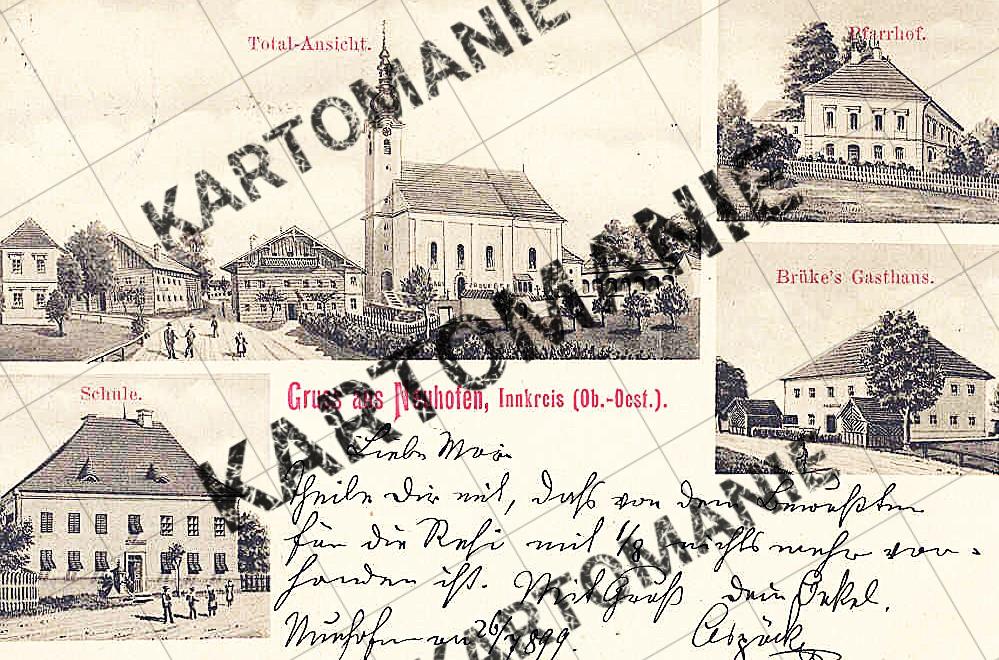 Total-Ansicht.
Pfarrhof.
Brüke's Gasthaus.
Schule.
Gruss aus Neuhofen, Innkreis (Ob.-Oest.).
Liebe
Theile Dir mit, daß von dem Bewußten
für die Resi mit 1/8 nichts mehr vor=
handen ist. Mit Gruß Dein Onkel.
Neuhofen am 26/ 899.
KARTOMANIE
KARTOMANIE
KARTOMANIE
KARTOMANIE